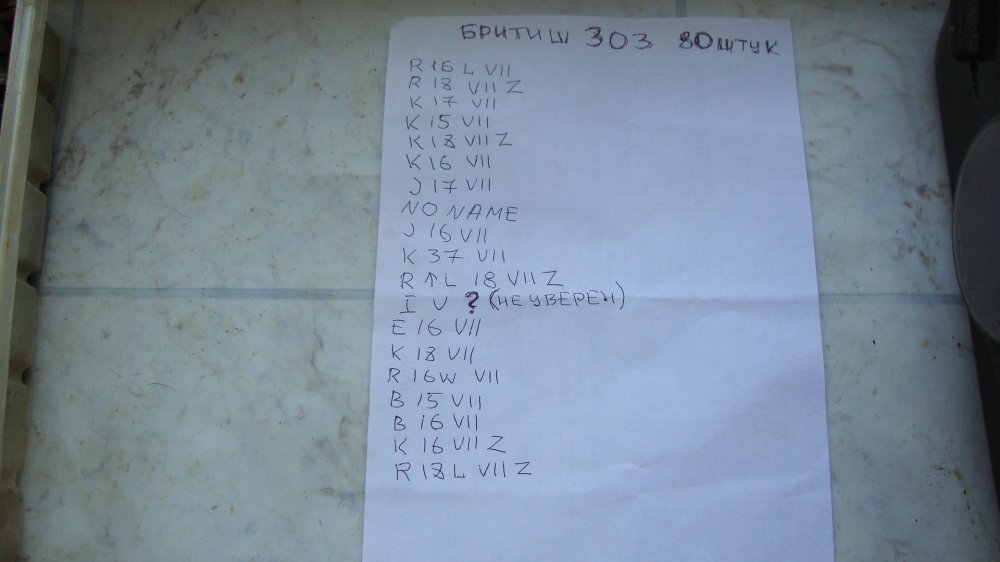 БРИТИШ 303 80 ШТУК
R 16 L VII
R 18 VII Z
K 17 VII
K 15 VII
K 18 VII Z
K 16 VII
J 17 VII
NO NAME
J 16 VII
K 37 VII
R ↑ L 18 VII Z
I V ? (НЕ УВЕРЕН)
E 16 VII
K 18 VII
R 16W VII
B 15 VII
B 16 VII
K 16 VII Z
R 18 L VII Z